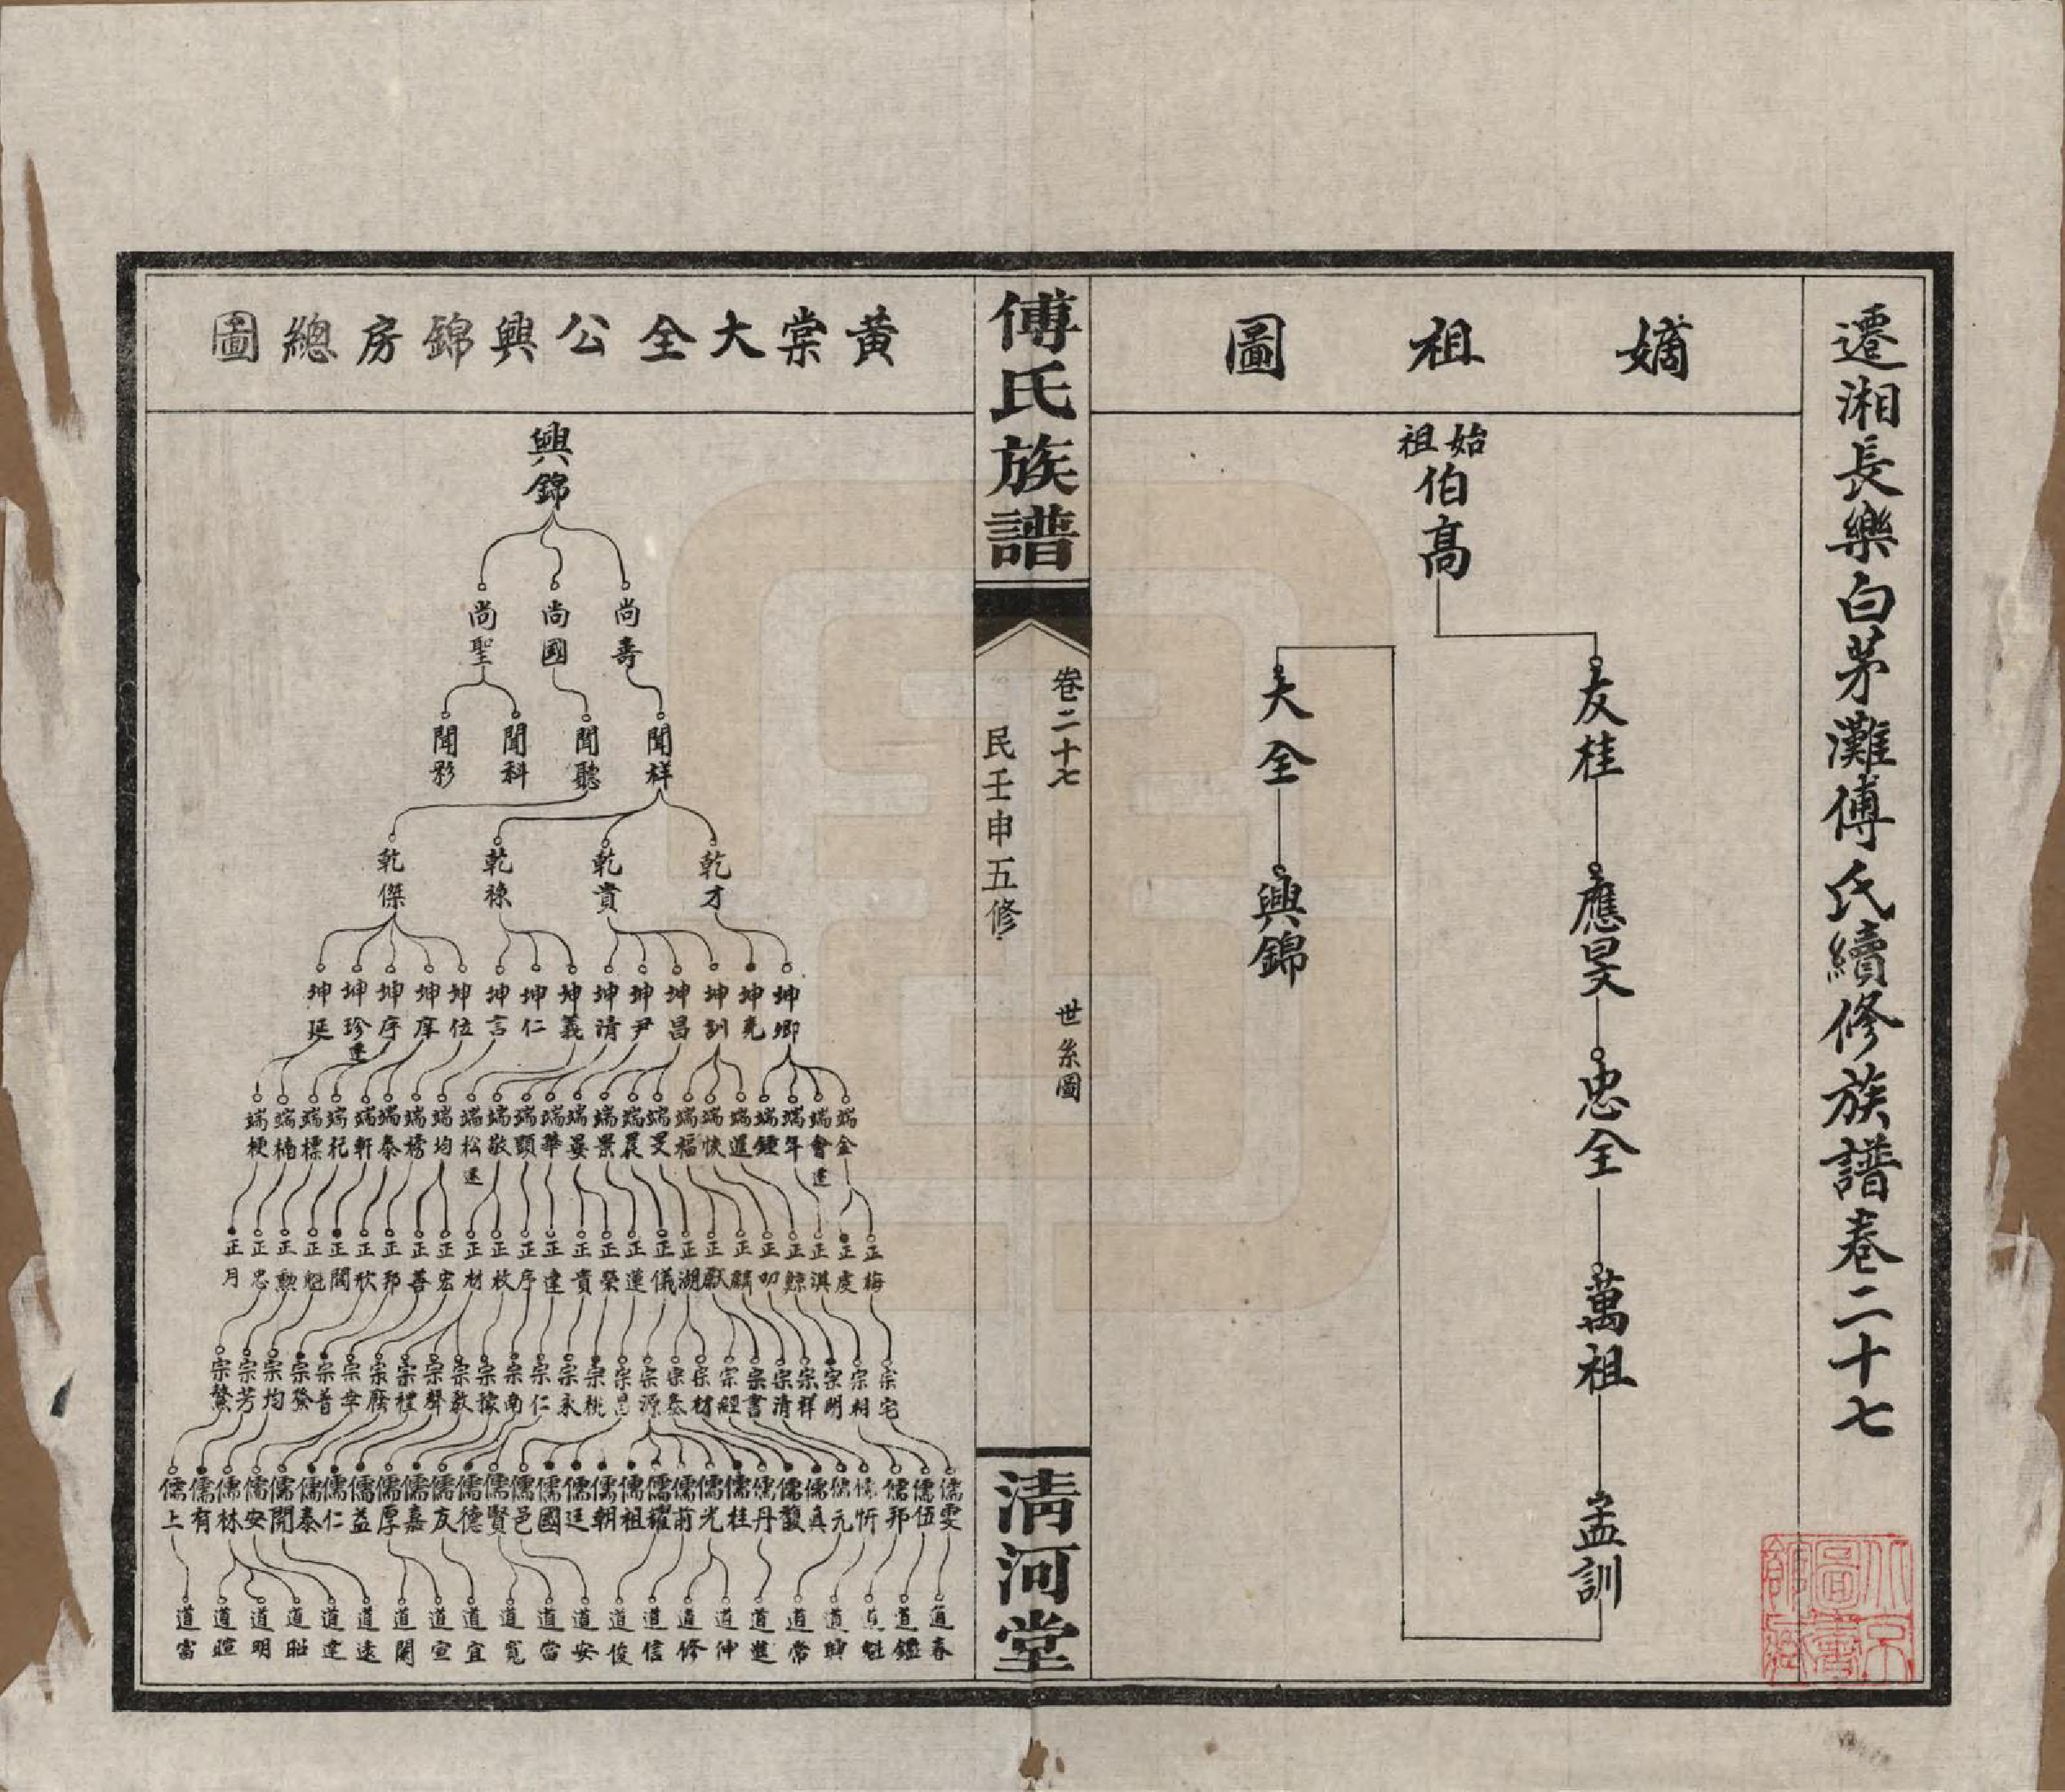 遷湘長樂白茅灘傅氏續修族譜卷二十七
嫡祖圖
始祖伯高
友桂
應旻
忠全
萬祖
孟訓
大全
興錦
傅氏族譜
卷二十七
世系圖
民壬申五修
清河堂
黃棠大全公興錦房總圖
興錦
尚壽 尚國 尚聖
聞祥 聞聽 聞科 聞彩
乾才 乾貴 乾祿 乾傑
坤卿 坤堯 坤訓 坤昌 坤尹 坤清 坤義 坤仁 坤言 坤位 坤庠 坤序 坤珍遷 坤廷
端金 端會遷 端年 端鍾 端暹 端快 端福 端旻 端晨 端景 端晏 端華 端顯 端敬 端松遷 端均 端榜 端泰 端軒 端杞 端標 端楠 端梗
正梅 正虔 正淇 正鯨 正叩 正麟 正猷 正湖 正儀 正蓮 正榮 正貴 正達 正序 正枚 正材 正宏 正善 正邦 正欣 正閣 正魁 正勳 正忠 正月
宗宅 宗相 宗明 宗祥 宗清 宗書 宗經 宗材 宗泰 宗源 宗昆 宗桃 宗永 宗仁 宗南 宗豫 宗教 宗聲 宗禮 宗普 宗發 宗均 宗芳 宗鰲
儒雯 儒伍 儒邦 儒忻 儒元 儒真 儒馥 儒丹 儒桂 儒光 儒前 儒耀 儒祖 儒朝 儒廷 儒國 儒邑 儒賢 儒德 儒友 儒嘉 儒厚 儒益 儒仁 儒泰 儒開 儒安 儒林 儒有 儒上
道春 道鑑 道魁 道聘 道常 道進 道仲 道修 道信 道俊 道安 道當 道寬 道宜 道宣 道開 道遠 道達 道明 道富